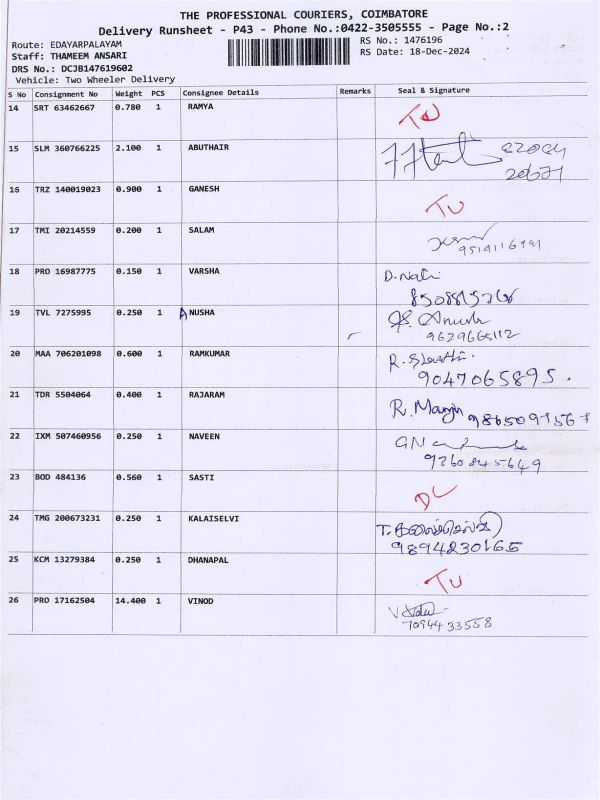 THE PROFESSIONAL COURIERS, COIMBATORE
Delivery Runsheet - P43 - Phone No.:0422-3505555 - Page No.:2
Route: EDAYARPALAYAM
RS No.: 1476196
Staff: THAMEEM ANSARI
RS Date: 18-Dec-2024
DRS No.: DCJB147619602
Vehicle: Two Wheeler Delivery
S No Consignment No Weight PCS Consignee Details Remarks Seal & Signature
14 SRT 63462667 0.780 1 RAMYA
15 SLM 360766225 2.100 1 ABUTHAIR
16 TRZ 140019023 0.900 1 GANESH TU
17 TMI 20214559 0.200 1 SALAM
18 PRO 16987775 0.150 1 VARSHA
19 TVL 7275995 0.250 1 ANUSHA
9629665112
20 MAA 706201098 0.600 1 RAMKUMAR
9047065895.
21 TDR 5504064 0.400 1 RAJARAM
22 IXM 507460956 0.250 1 NAVEEN
9260845649
23 BOD 484136 0.560 1 SASTI DL
24 TMG 200673231 0.250 1 KALAISELVI
T. கலைச்செல்வி
9894230165
25 KCM 13279384 0.250 1 DHANAPAL TU
26 PRO 17162504 14.400 1 VINOD
7094433558